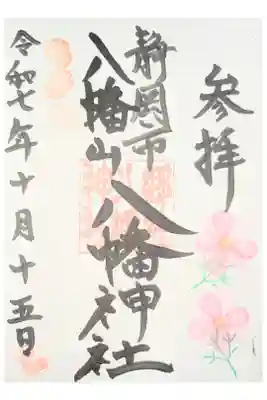 参拝
静岡市
八幡山
八幡神社
令和七年十月十五日